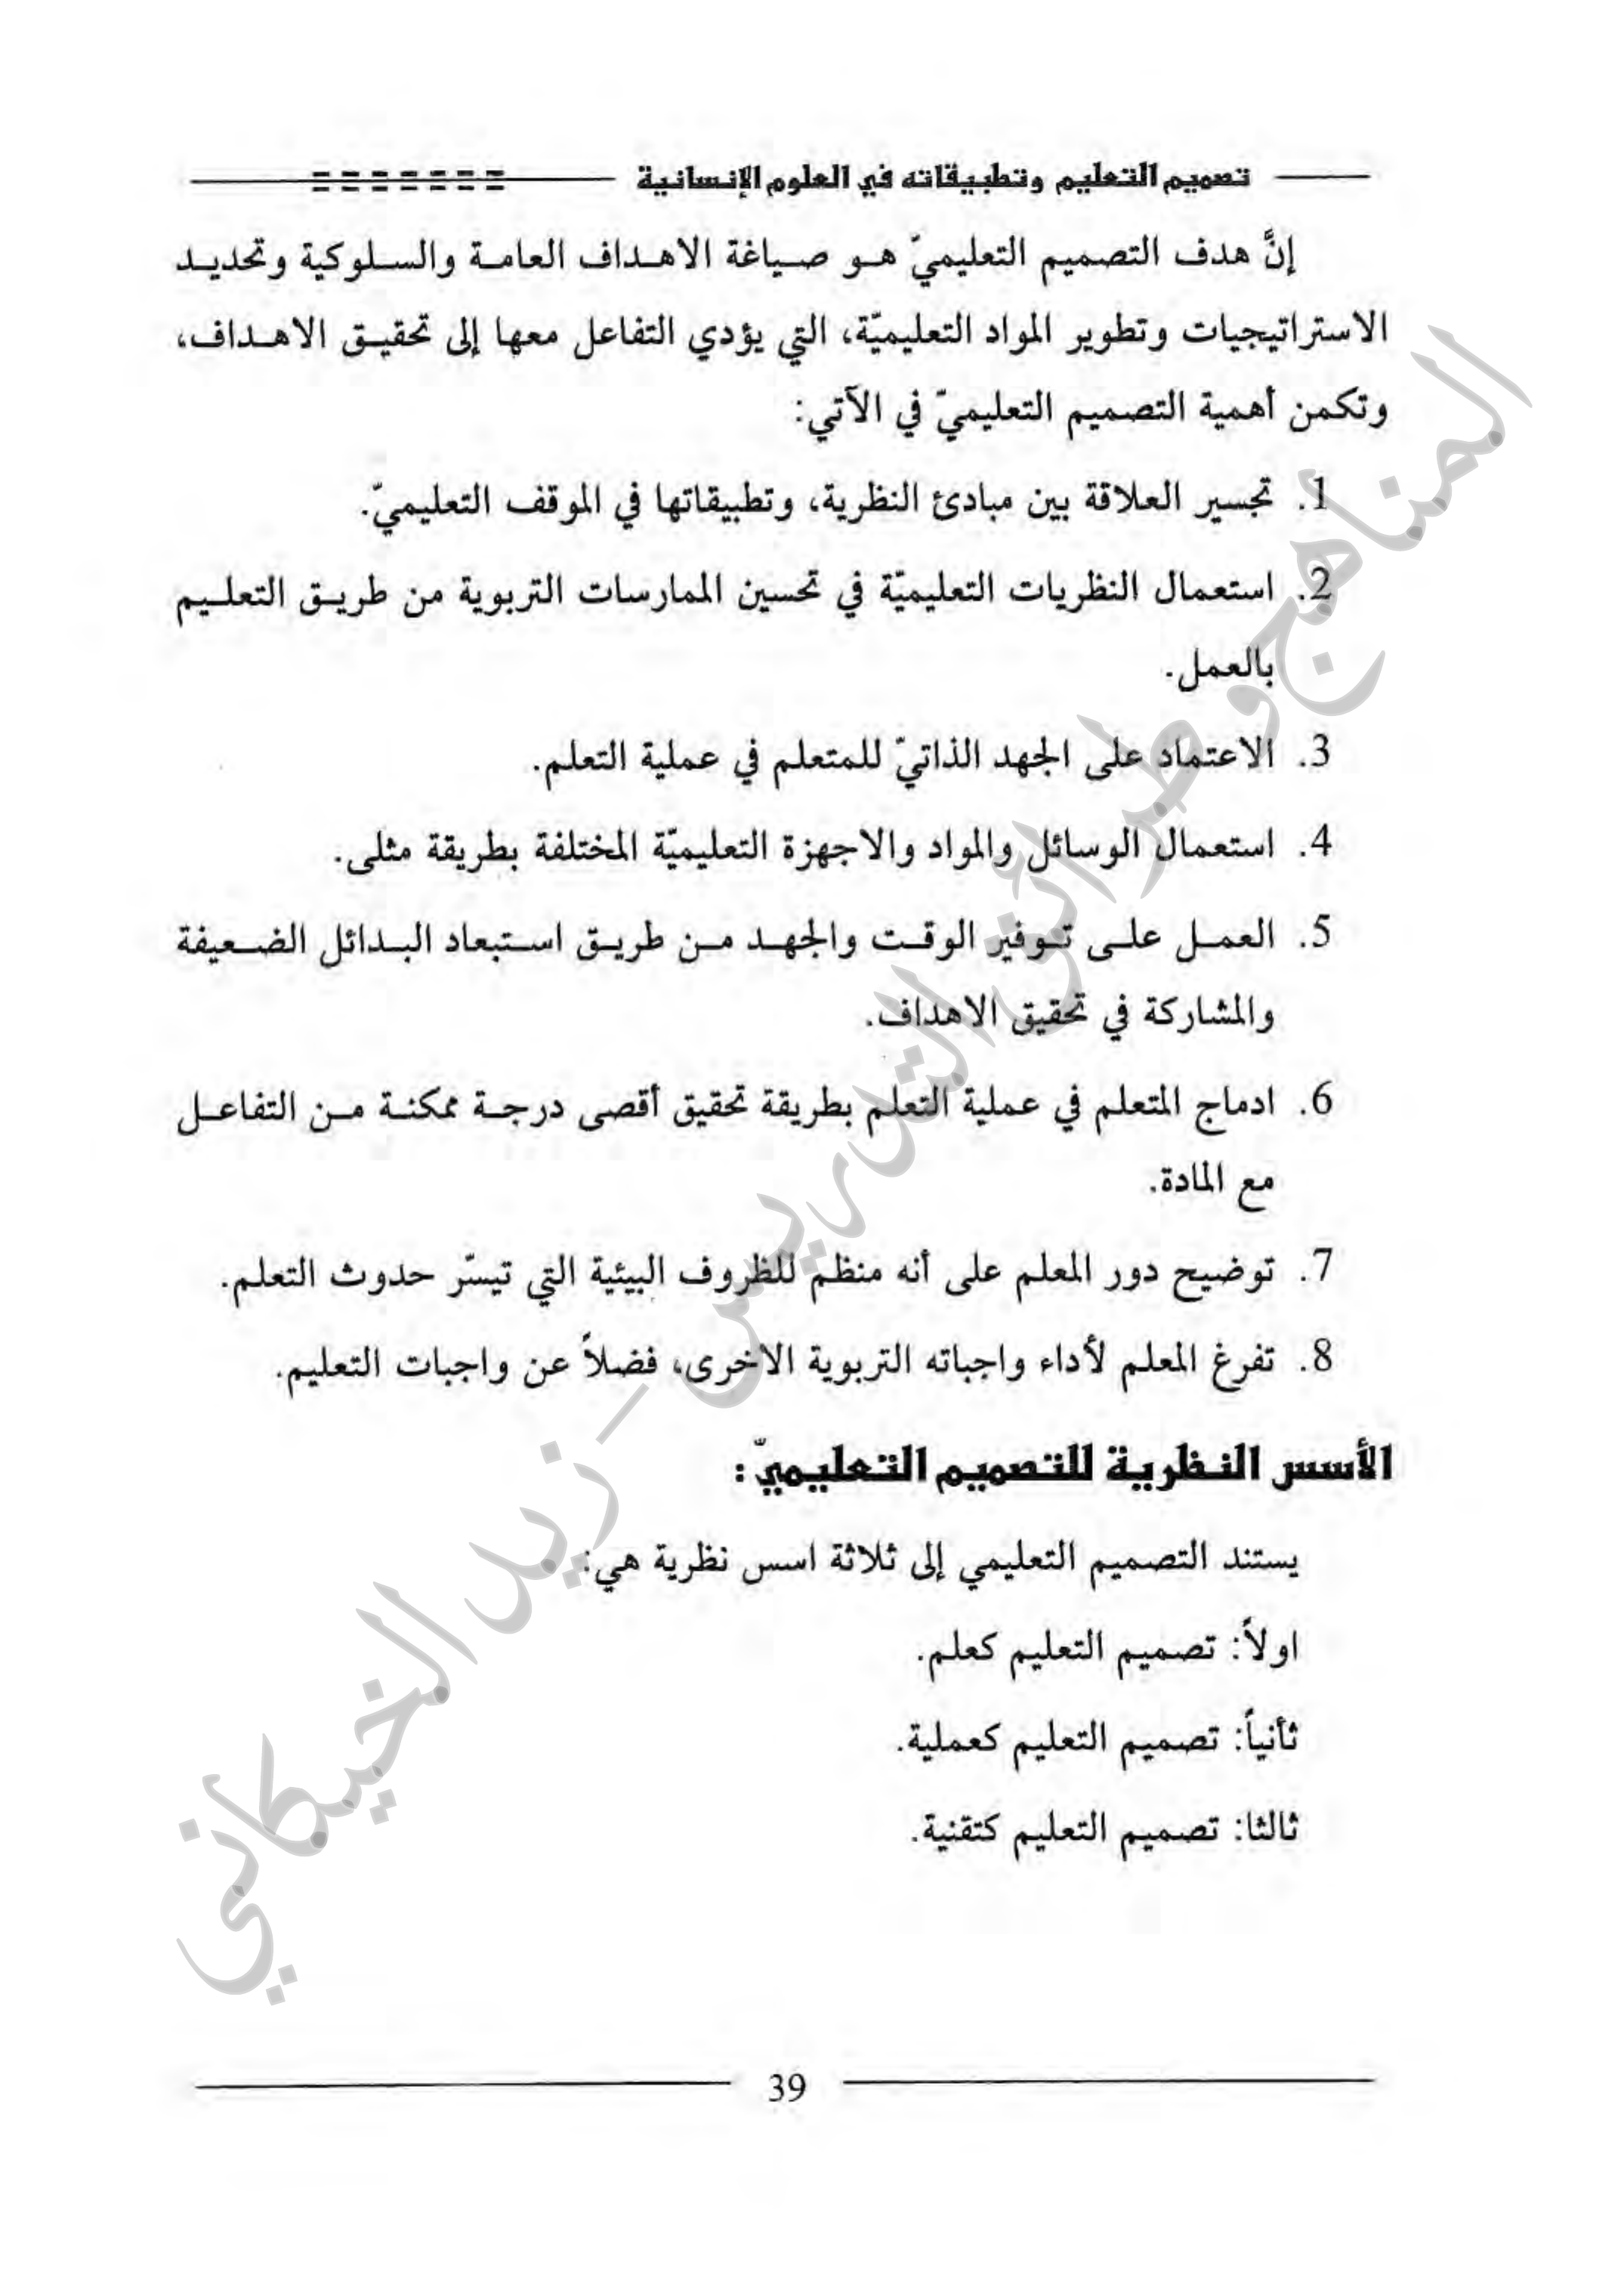 تصميم التعليم وتطبيقاته في العلوم الإنسانية
إنَّ هدف التصميم التعليميّ هو صياغة الاهداف العامة والسلوكية وتحديد
الاستراتيجيات وتطوير المواد التعليميّة، التي يؤدي التفاعل معها إلى تحقيق الاهداف،
وتكمن أهمية التصميم التعليميّ في الآتي:
1. تجسير العلاقة بين مبادئ النظرية، وتطبيقاتها في الموقف التعليميّ.
2. استعمال النظريات التعليميّة في تحسين الممارسات التربوية من طريق التعليم
بالعمل.
3. الاعتماد على الجهد الذاتيّ للمتعلم في عملية التعلم.
4. استعمال الوسائل والمواد والاجهزة التعليميّة المختلفة بطريقة مثلى.
5. العمل على توفير الوقت والجهد من طريق استبعاد البدائل الضعيفة
والمشاركة في تحقيق الاهداف.
6. ادماج المتعلم في عملية التعلم بطريقة تحقيق أقصى درجة ممكنة من التفاعل
مع المادة.
7. توضيح دور المعلم على أنه منظم للظروف البيئية التي تيسّر حدوث التعلم.
8. تفرغ المعلم لأداء واجباته التربوية الاخرى، فضلاً عن واجبات التعليم.
الأسس النظرية للتصميم التعليميّ:
يستند التصميم التعليمي إلى ثلاثة اسس نظرية هي:
اولاً: تصميم التعليم كعلم.
ثأنياً: تصميم التعليم كعملية.
ثالثا: تصميم التعليم كتقنية.
39
المناهج وطرائق التدريس - زيد الخيكاني